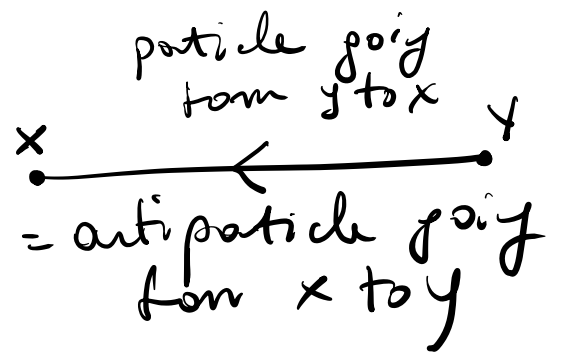 particle going
from y to x
x
y
= antiparticle going
from x to y